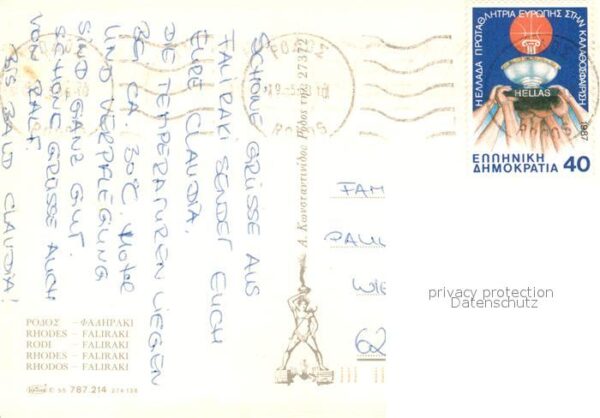 SCHÖNE GRÜSSE AUS
FALIRAKI SENDET EUCH
EURE CLAUDIA.
DIE TEMPERATUREN LIEGEN
BEI CA. 30°C. HOTEL
UND VERPFLEGUNG
SIND GANZ GUT.
SCHÖNE GRÜSSE AUCH
VON RALF.
BIS BALD CLAUDIA!
ΡΟΔΟΣ – ΦΑΛΗΡΑΚΙ
RHODES – FALIRAKI
RODI – FALIRAKI
RHODES – FALIRAKI
RHODOS – FALIRAKI
787.214
Δ. Κωνσταντινίδος Ρόδος τηλ. 27372
ΡΟΔΟΣ
RODOS
FAM
PAUL
WIE
62
Η ΕΛΛΑΔΑ ΠΡΩΤΑΘΛΗΤΡΙΑ ΕΥΡΩΠΗΣ ΣΤΗΝ ΚΑΛΑΘΟΣΦΑΙΡΙΣΗ
HELLAS
1987
ΕΛΛΗΝΙΚΗ
ΔΗΜΟΚΡΑΤΙΑ 40
privacy protection
Datenschutz